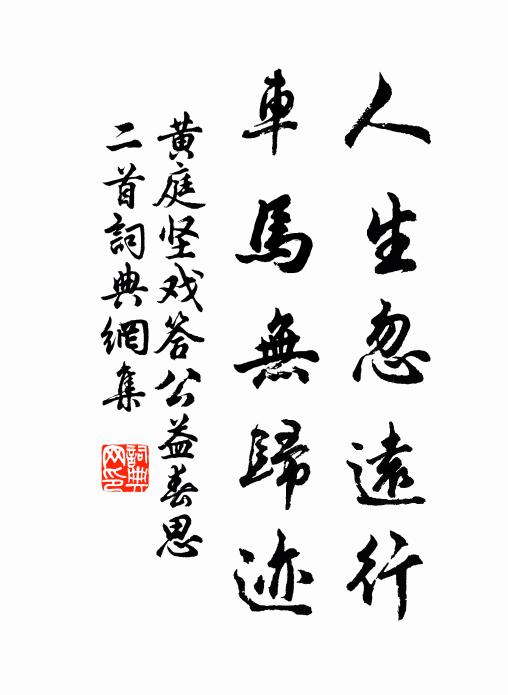 人生忽遠行
車馬無歸迹
黄庭坚戏答公益春思
二首詞典網集
詞典网印